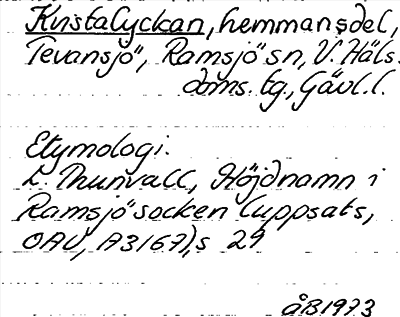 Kristalyckan, hemmansdel,
Tevansjö, Ramsjö sn, V. Häls.
doms. tg., Gävl. l.
Etymologi:
L. Thunvall, Höjdnamn i
Ramsjö socken (uppsats,
OAU, A3167), s 29
ÅB 1973